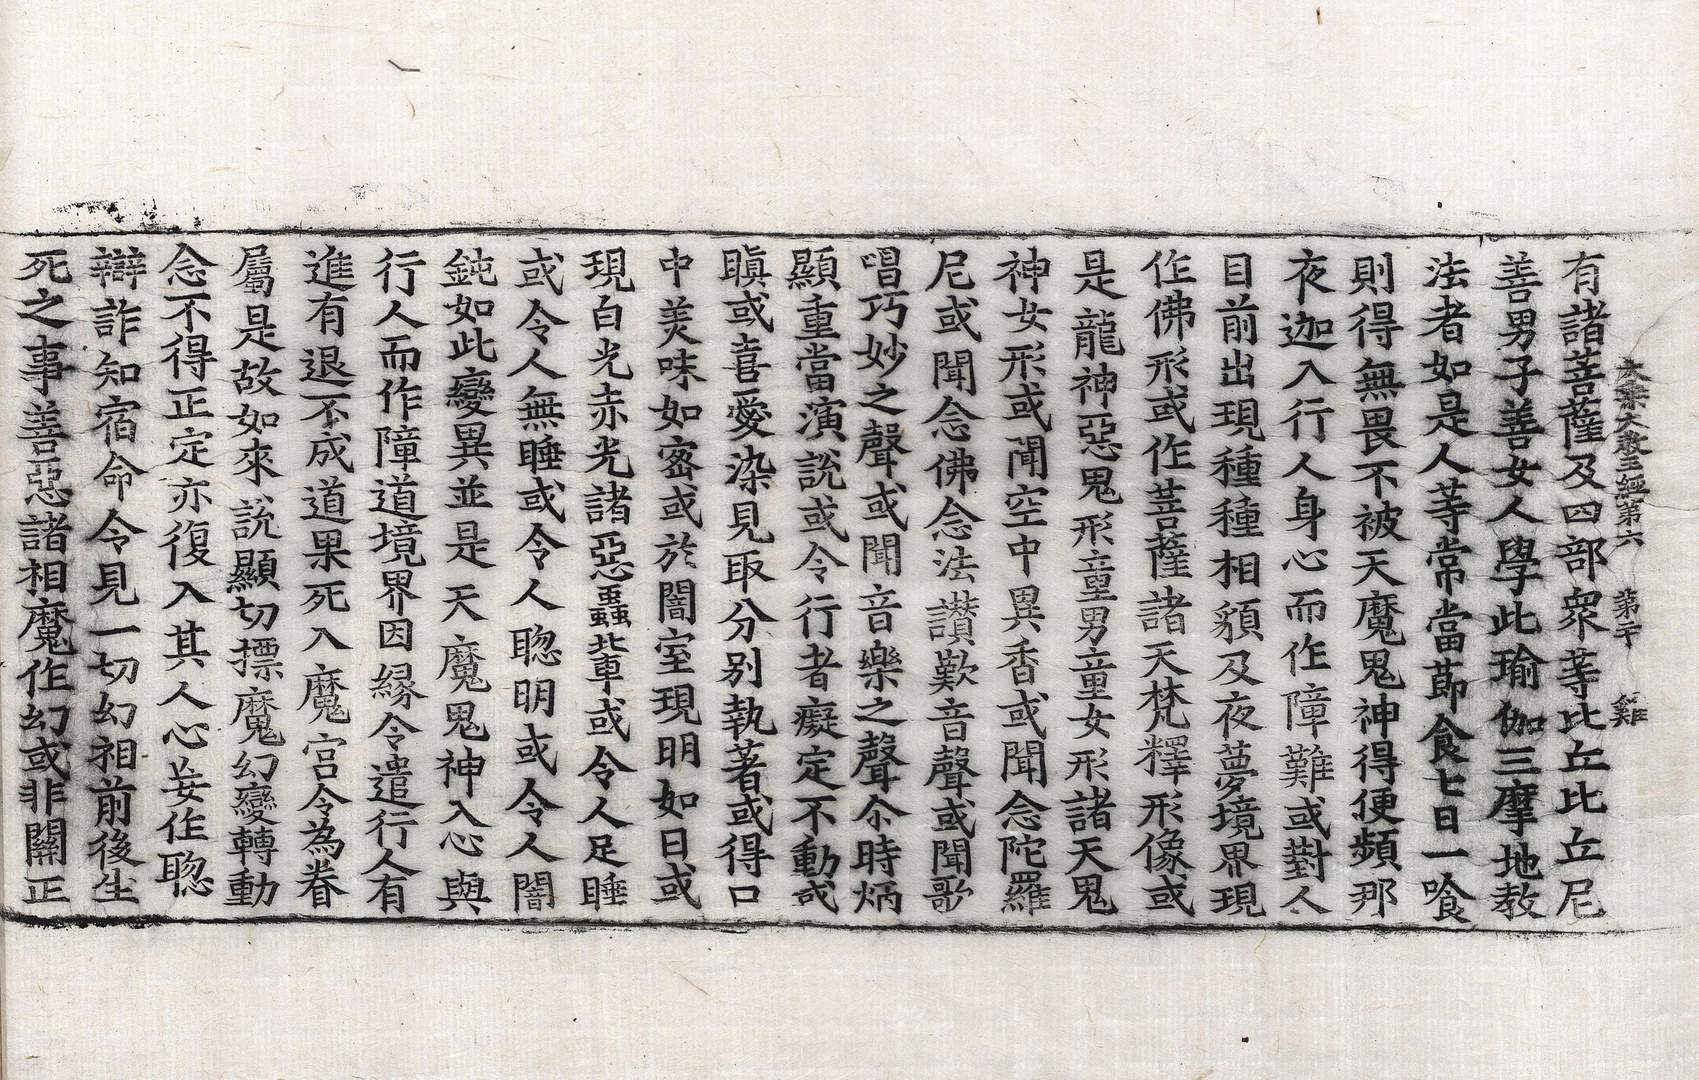 大乘大教王經第六 第二十 雞
有諸菩薩及四部衆等比丘比丘尼
善男子善女人學此瑜伽三摩地教
法者如是人等常當節食七日一喰
則得無畏不被天魔鬼神得便頻那
夜迦入行人身心而作障難或對人
目前出現種種相䫉及夜夢境界現
作佛形或作菩薩諸天梵釋形像或
是龍神惡鬼形童男童女形諸天鬼
神女形或聞空中異香或聞念陀羅
尼或聞念佛念法讃歎音聲或聞歌
唱巧妙之聲或聞音樂之聲尒時炳
顯重當演說或令行者癡定不動或
瞋或喜愛染見取分别執著或得口
中美味如宻或於闇室現明如日或
現白光赤光諸惡蟲輩或令人足睡
或令人無睡或令人聦明或令人闇
鈍如此變異並是天魔鬼神入心與
行人而作障道境界因縁令遣行人有
進有退不成道果死入魔宫令為眷
屬是故如來說顯切摽魔幻變轉動
念不得正定亦復入其人心妄作聦
辯詐知宿命令見一切幻相前後生
死之事善惡諸相魔作幻或非關正